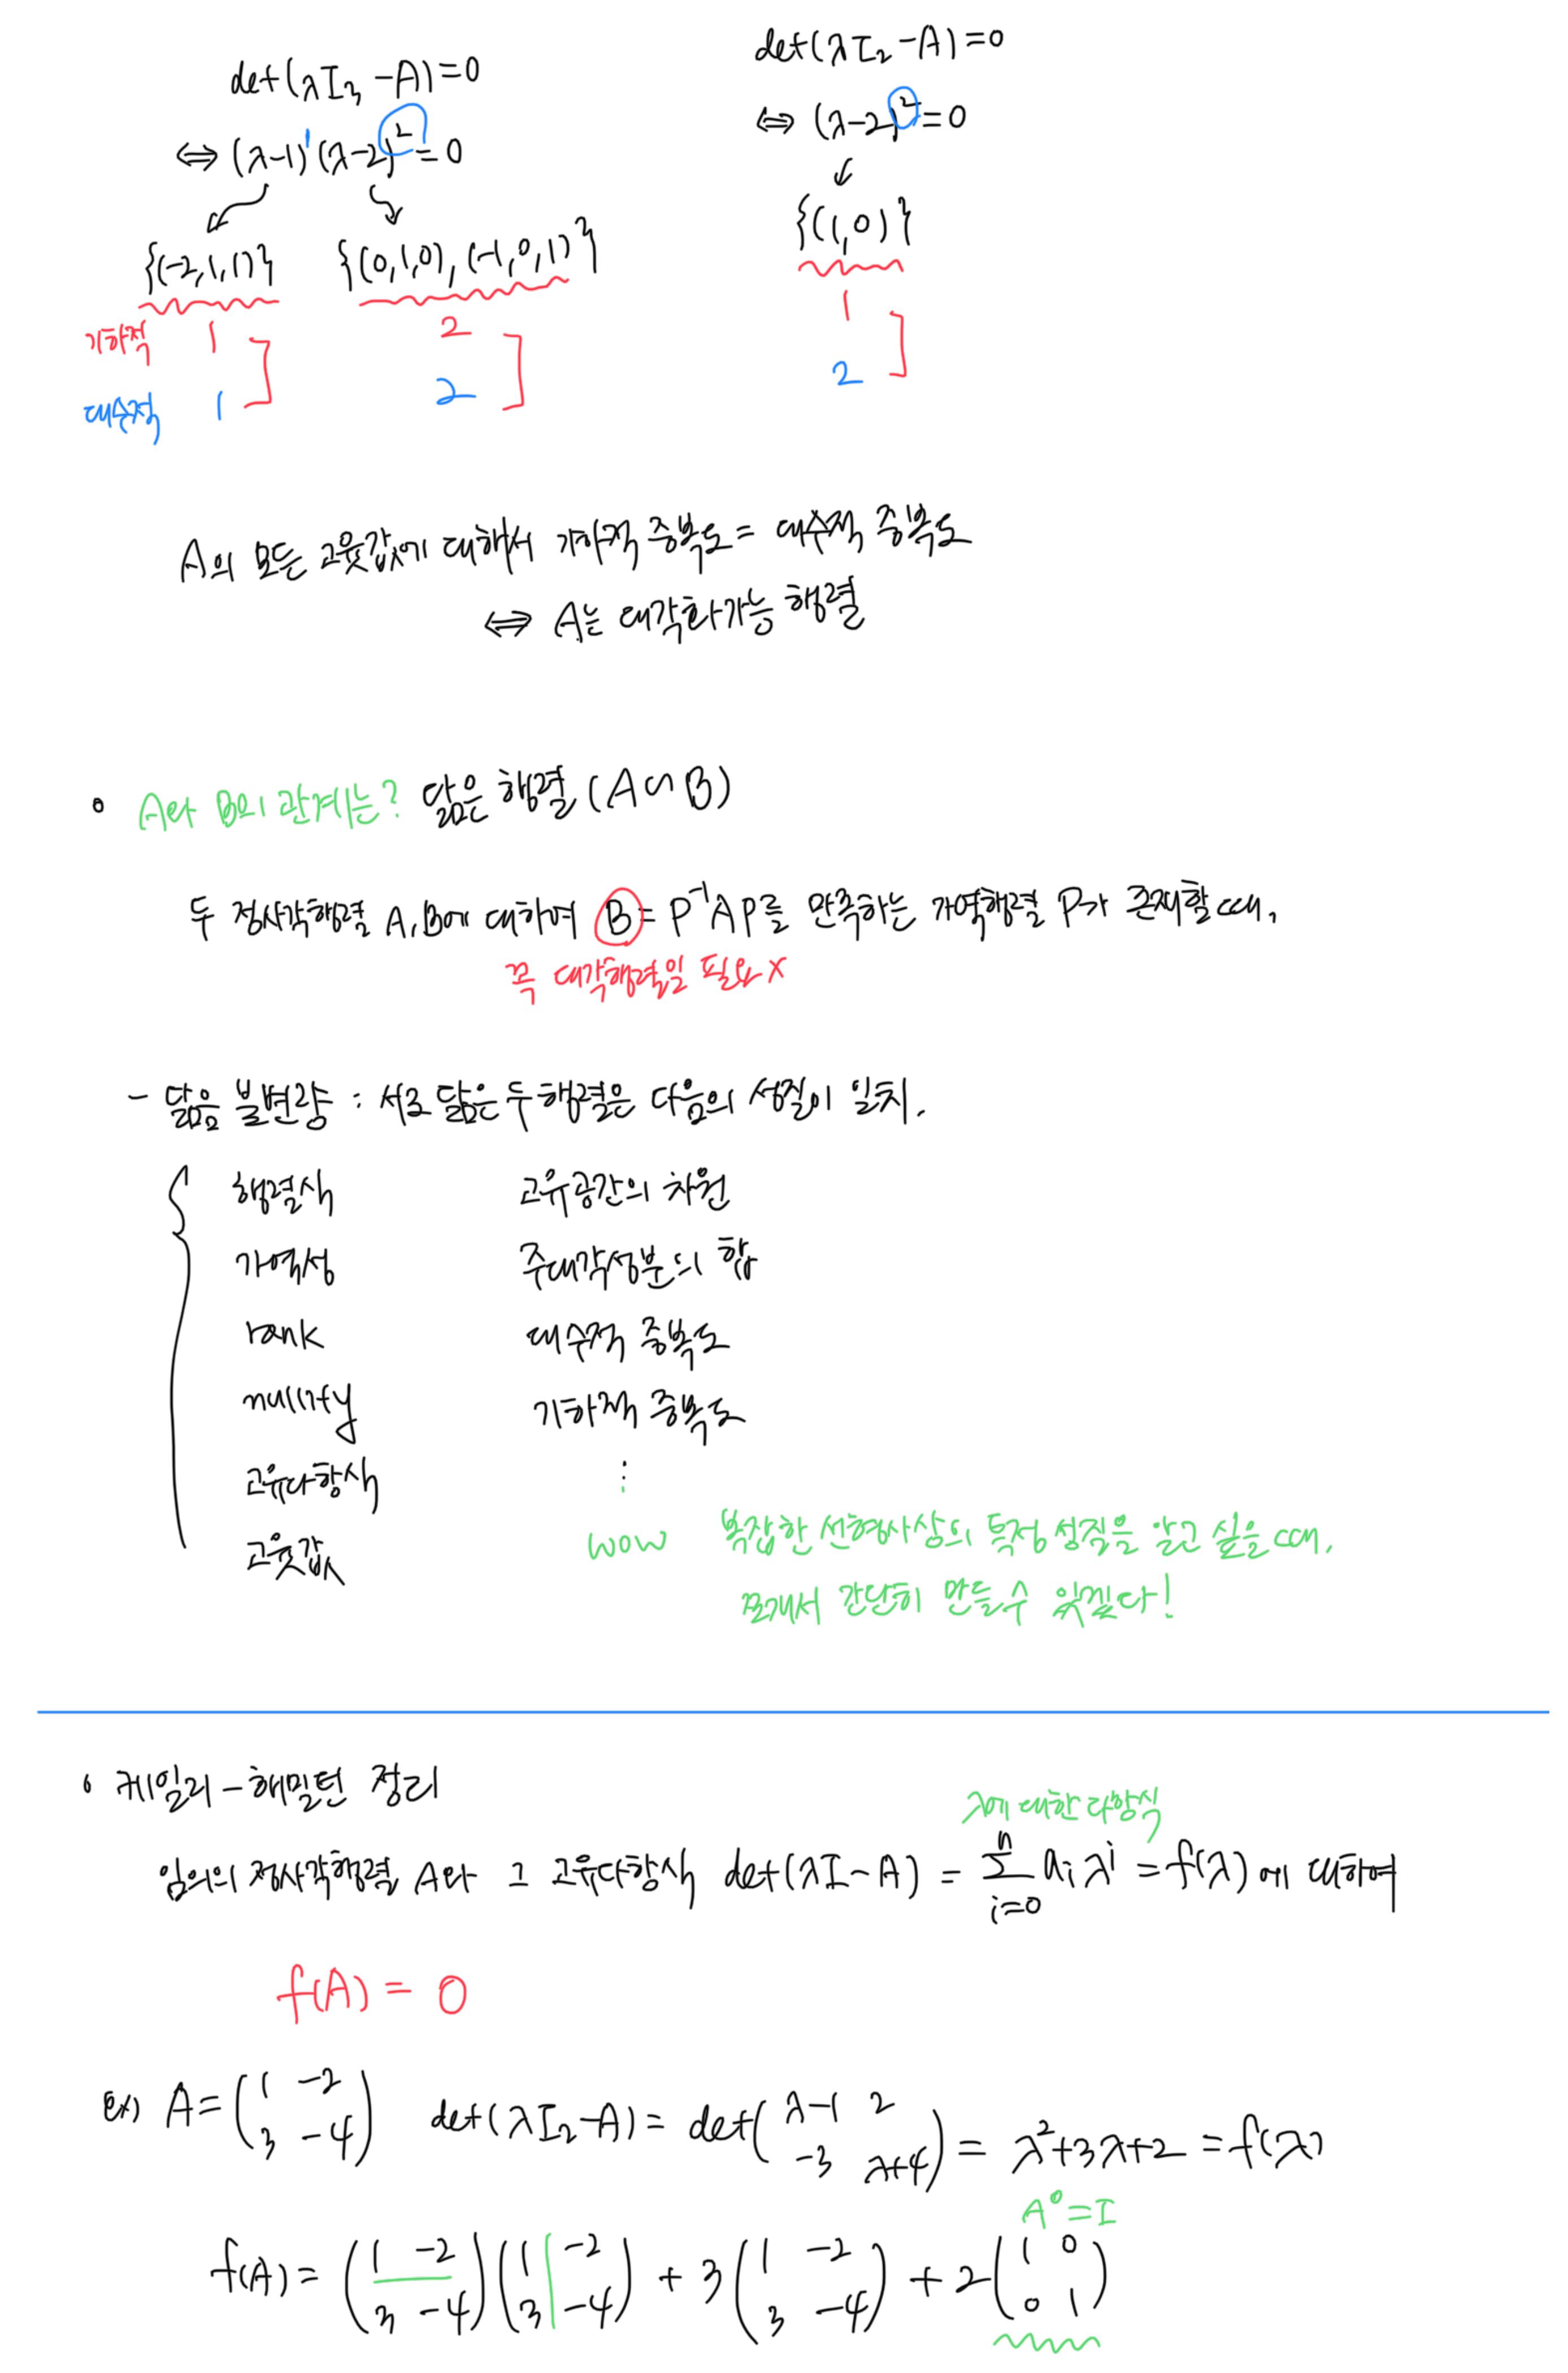 det(λI₃-A)=0
⇔ (λ-1)¹(λ-2)²=0
{(-2,1,1)} {(0,1,0), (-1,0,1)}
기하적 1 2
대수적 1 2
det(λI₂-A)=0
⇔ (λ-2)²=0
{(1,0)}
1
2
A의 모든 고윳값에 대해서 기하적 중복도 = 대수적 중복도
⇔ A는 대각화가능 행렬
• A와 B의 관계는? 닮은 행렬 (A∽B)
두 정사각행렬 A, B에 대하여 B = P⁻¹AP를 만족하는 가역행렬 P가 존재할 때,
꼭 대각행렬일 필요 x
- 닮음 불변량 : 서로 닮은 두 행렬은 다음의 성질이 일치.
행렬식 고유공간의 차원
가역성 주대각성분의 합
rank 대수적 중복도
nullity 기하적 중복도
고유다항식 ⋮
고윳값
wow 복잡한 선형사상의 특정 성질을 알고 싶을 때,
쪼개서 간단히 만들 수 있겠다!
• 케일리-해밀턴 정리
λ에 대한 다항식
임의의 정사각행렬 A와 그 고유다항식 det(λI-A) = Σ_{i=0}^{n} a_i λ^i = f(λ)에 대하여
f(A) = 0
ex) A = (1 -2; 3 -4) det(λI₂-A) = det(λ-1 2; -3 λ+4) = λ²+3λ+2 = f(λ)
A⁰=I
f(A) = (1 -2; 3 -4)(1 -2; 3 -4) + 3(1 -2; 3 -4) + 2(1 0; 0 1)